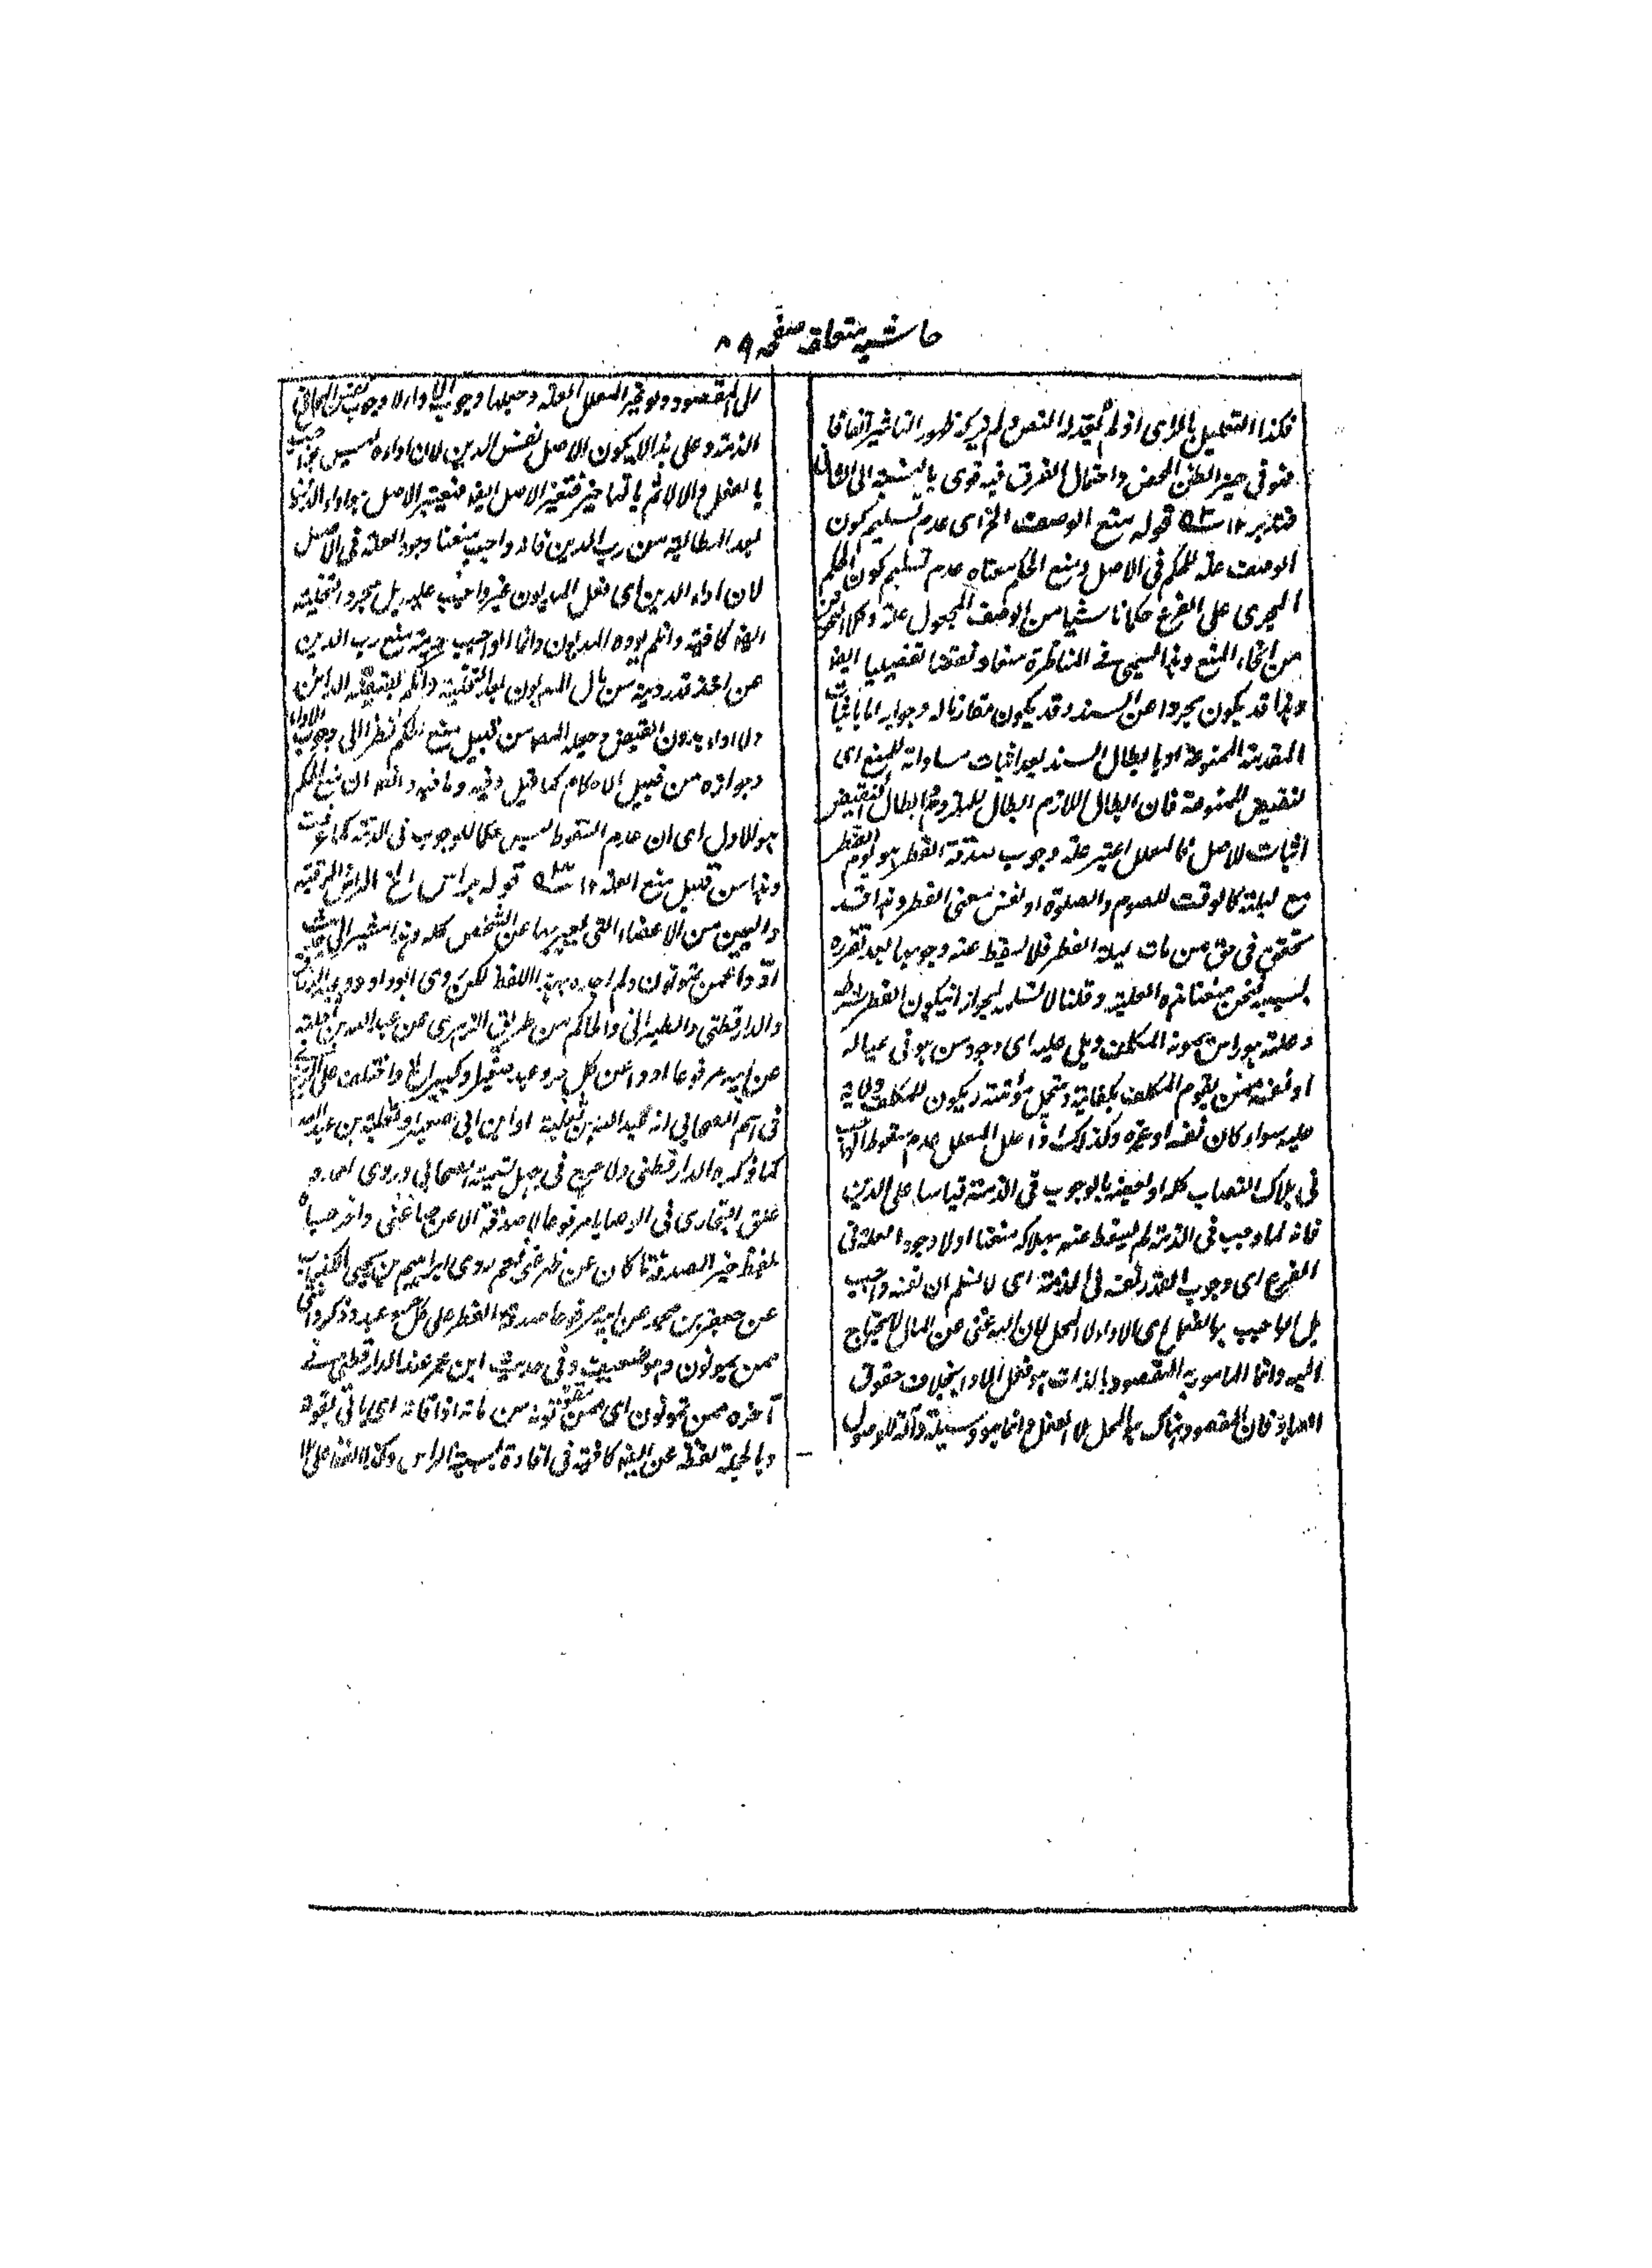 حاشیہ متعلق صفحہ ٨٩
فكذا التعليل بالرأى اذ لم يقيد له النص ولم يدرك ظهور التاثير اتفاقا
فهو فى حيز الظن المحض واحتمال الفرق فيه قوى بالنسبة الى
فتدبر ١٢ قوله منع الوصف الخ اى عدم تسليم كون
الوصف علة للحكم فى الاصل ومنع الحكم معناه عدم تسليم كون الحكم
المجرى على الفرع حكما ناشيا من الوصف المجعول علة وكلا النحوين
من انحاء المنع وهذا يسمى فى المناظرة منعا ونقضا تفصيليا ايضا
وهذا قد يكون مجردا عن السند وقد يكون مقارنا له وجوابه اما باثبات
المقدمة الممنوعة او بابطال السند بعد اثبات مساواته للمنع اى
لنقيض الممنوعة فان ابطال اللازم ابطال للملزوم وابطال النقيض
اثبات للاصل فالمعلل اعتبر علة وجوب صدقة الفطر هو يوم الفطر
مع ليلته كالوقت للصوم والصلوة او نفس معنى الفطر وهذا قد
تحقق فى حق من مات ليلة الفطر فلا يسقط عنه وجوبها بعد تقرره
بسببه فنحن منعنا هذه العلية وقلنا لا نسلم لجواز ان يكون الفطر شرطه
وعلته هو راس يمونه المكلف ويلى عليه اى وجود من هو فى عياله
او نفسه ممن يقوم المكلف بكفايته وتحمل مؤنته ويكون للمكلف ولاية
عليه سواء كان نفسه او غيره وكذلك اذا علل المعلل عدم سقوط الواجب
فى هلاك النصاب كله او بعضه بالوجوب فى الذمة قياسا على الدين
فانه لما وجب فى الذمة لم يسقط عنه بهلاكه منعنا اولا وجود العلة فى
الفرع اى وجوب القدر نفسه فى الذمة اى لا نسلم ان نفسه واجب
بل الواجب هو الفعل اى الاداء لا المحل لان الله غنى عن المال لا يحتاج
اليه وانما المامور به المقصود بالذات هو فعل الاداء بخلاف حقوق
العباد فان المقصود هناك هو المحل لا الفعل وانما هو وسيلة وآلة للوصول
الى المقصود ولو غير المعلل العلة وجعلها وجوب الاداء لا وجوب نفس المال فى
الذمة وعلى هذا لا يكون الاصل نفس الدين لان اداءه ليس بواجب
بالفعل والا لاثم بالتاخير فتغير الاصل ايضا فيعتبر الاصل هو اداء الدين
بعد المطالبة من رب الدين فانه واجب منعنا وجود العلة فى الاصل
لان اداء الدين اى فعل المديون غير واجب عليه بل مجرد التخلية
ايضا كافية وان لم يؤده المديون وانما الواجب حرمة منع رب الدين
عن اخذ قدر دينه من مال المديون بعد التخلية وان لم يقبضه الدائن
ولا اداء بدون القبض وجعله من قبيل منع الحكم نظرا الى وجوب الاداء
وجوازه من قبيل الاحكام كما قيل وفيه ما فيه وافهم ان منع الحكم
هو للاول اى ان عدم السقوط ليس حكما للوجوب فى الذمة كما عرفت
وهذا من قبيل منع العلة ١٢ قوله هو راس الخ الراس الرقبة
واليمين من الاعضاء التى يعبر بها عن الشخص كله وهذا يشير الى حديث
ادوا عمن تمونون ولم اجده بهذا اللفظ لكن روى ابو داود وعبد الرزاق
والدارقطنى والطبرانى والحاكم من طريق الزهرى عن عبد الله بن ثعلبة
عن ابيه مرفوعا ادوا عن كل حر وعبد صغير او كبير الخ واختلف على الزهرى
فى اسم الصحابى انه عبد الله بن ثعلبة او ابن ابى صعير او ثعلبة بن عبد الله
كما ذكره الدارقطنى ولا حرج فى جهل تسمية الصحابى وروى احمد و
علق البخارى فى الوصايا مرفوعا لا صدقة الا عن ظهر غنى واخرجاه
بلفظ خير الصدقة ما كان عن ظهر غنى نعم روى ابراهيم بن يحيى
عن جعفر بن محمد عن ابيه مرفوعا صدقة الفطر على كل حر وعبد وذكر وانثى
ممن يمونون وهو ضعيف وفى حديث ابن عمر عند الدارقطنى فى
آخره ممن تمونون اى ممن تقوتونه من مانه اذا قاته اى ياتى بقوته
وبالجملة لفظة عن ايضا كافية فى افادة سببية الراس